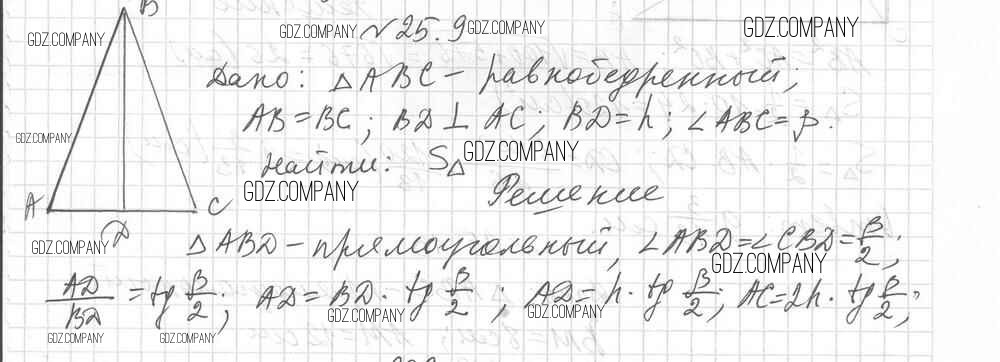 B
GDZ.COMPANY
GDZ.COMPANY № 25.9 GDZ.COMPANY
GDZ.COMPANY
Дано: △ABC – равнобедренный,
AB = BC; BD ⊥ AC; BD = h; ∠ABC = β.
GDZ.COMPANY
Найти: S△ GDZ.COMPANY
GDZ.COMPANY Решение
A C
D
GDZ.COMPANY
△ABD – прямоугольный, ∠ABD = ∠CBD = β/2;
GDZ.COMPANY
AD/BD = tg β/2; AD = BD · tg β/2; AD = h · tg β/2; AC = 2h · tg β/2;
GDZ.COMPANY GDZ.COMPANY
GDZ.COMPANY GDZ.COMPANY